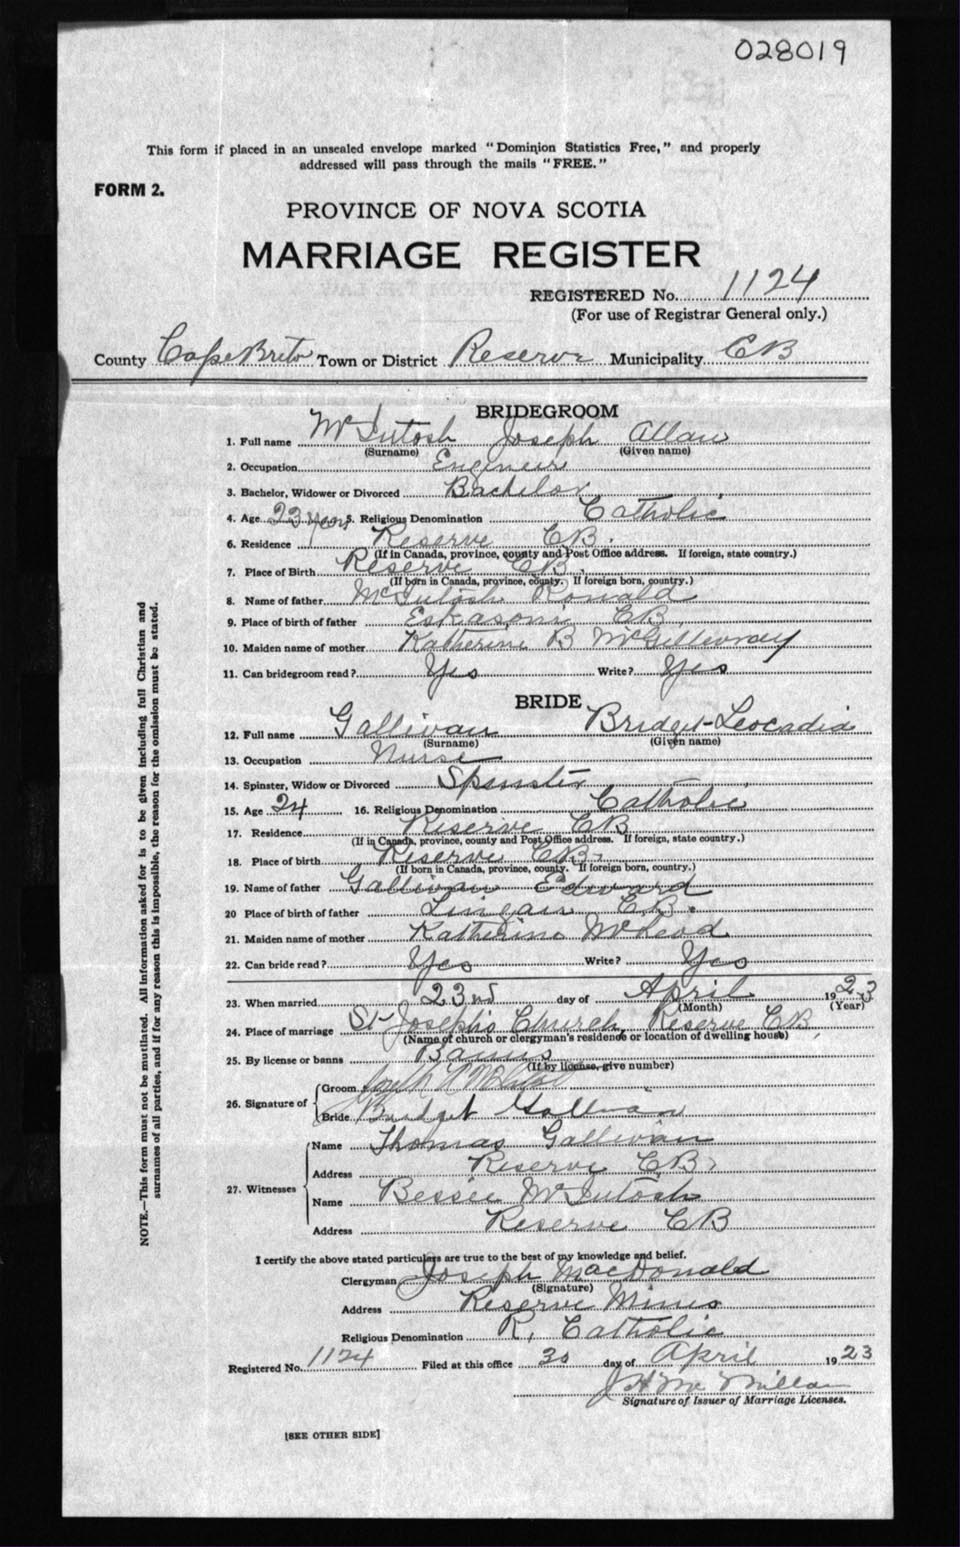 028019
This form if placed in an unsealed envelope marked "Dominion Statistics Free," and properly
addressed will pass through the mails "FREE."
FORM 2.
PROVINCE OF NOVA SCOTIA
MARRIAGE REGISTER
REGISTERED No. 1124
(For use of Registrar General only.)
County Cape Breton Town or District Reserve Municipality CB
BRIDEGROOM
1. Full name McIntosh Joseph Allan
(Surname) (Given name)
2. Occupation Engineer
3. Bachelor, Widower or Divorced Bachelor
4. Age 23 years 5. Religious Denomination Catholic
6. Residence Reserve CB.
(If in Canada, province, county and Post Office address. If foreign, state country.)
7. Place of Birth Reserve CB.
(If born in Canada, province, county. If foreign born, country.)
8. Name of father McIntosh Ronald
9. Place of birth of father Eskasoni CB.
10. Maiden name of mother Katherine B McGillivray
11. Can bridegroom read? Yes Write? Yes
BRIDE
12. Full name Gallivan Bridget Leocadia
(Surname) (Given name)
13. Occupation Nurse
14. Spinster, Widow or Divorced Spinster
15. Age 24 16. Religious Denomination Catholic
17. Residence Reserve CB
(If in Canada, province, county and Post Office address. If foreign, state country.)
18. Place of birth Reserve CB.
(If born in Canada, province, county. If foreign born, country.)
19. Name of father Gallivan Edward
20 Place of birth of father Lingan CB.
21. Maiden name of mother Katherine McLeod
22. Can bride read? Yes Write? Yes
23. When married 23nd day of April 1923
(Month) (Year)
24. Place of marriage St Joseph's Church, Reserve CB,
(Name of church or clergyman's residence or location of dwelling house)
25. By license or banns Banns
(If by license, give number)
26. Signature of Groom Joseph A
Bride Bridget Gallivan
27. Witnesses Name Thomas Gallivan
Address Reserve CB
Name Bessie McIntosh
Address Reserve CB
I certify the above stated particulars are true to the best of my knowledge and belief.
Clergyman Joseph MacDonald
(Signature)
Address Reserve Mines
Religious Denomination R. Catholic
Registered No. 1124 Filed at this office 30 day of April 1923
J H McMillan
Signature of Issuer of Marriage Licenses.
[SEE OTHER SIDE]
NOTE.—This form must not be mutilated. All information asked for is to be given including full Christian and
surnames of all parties, and if for any reason this is impossible, the reason for the omission must be stated.